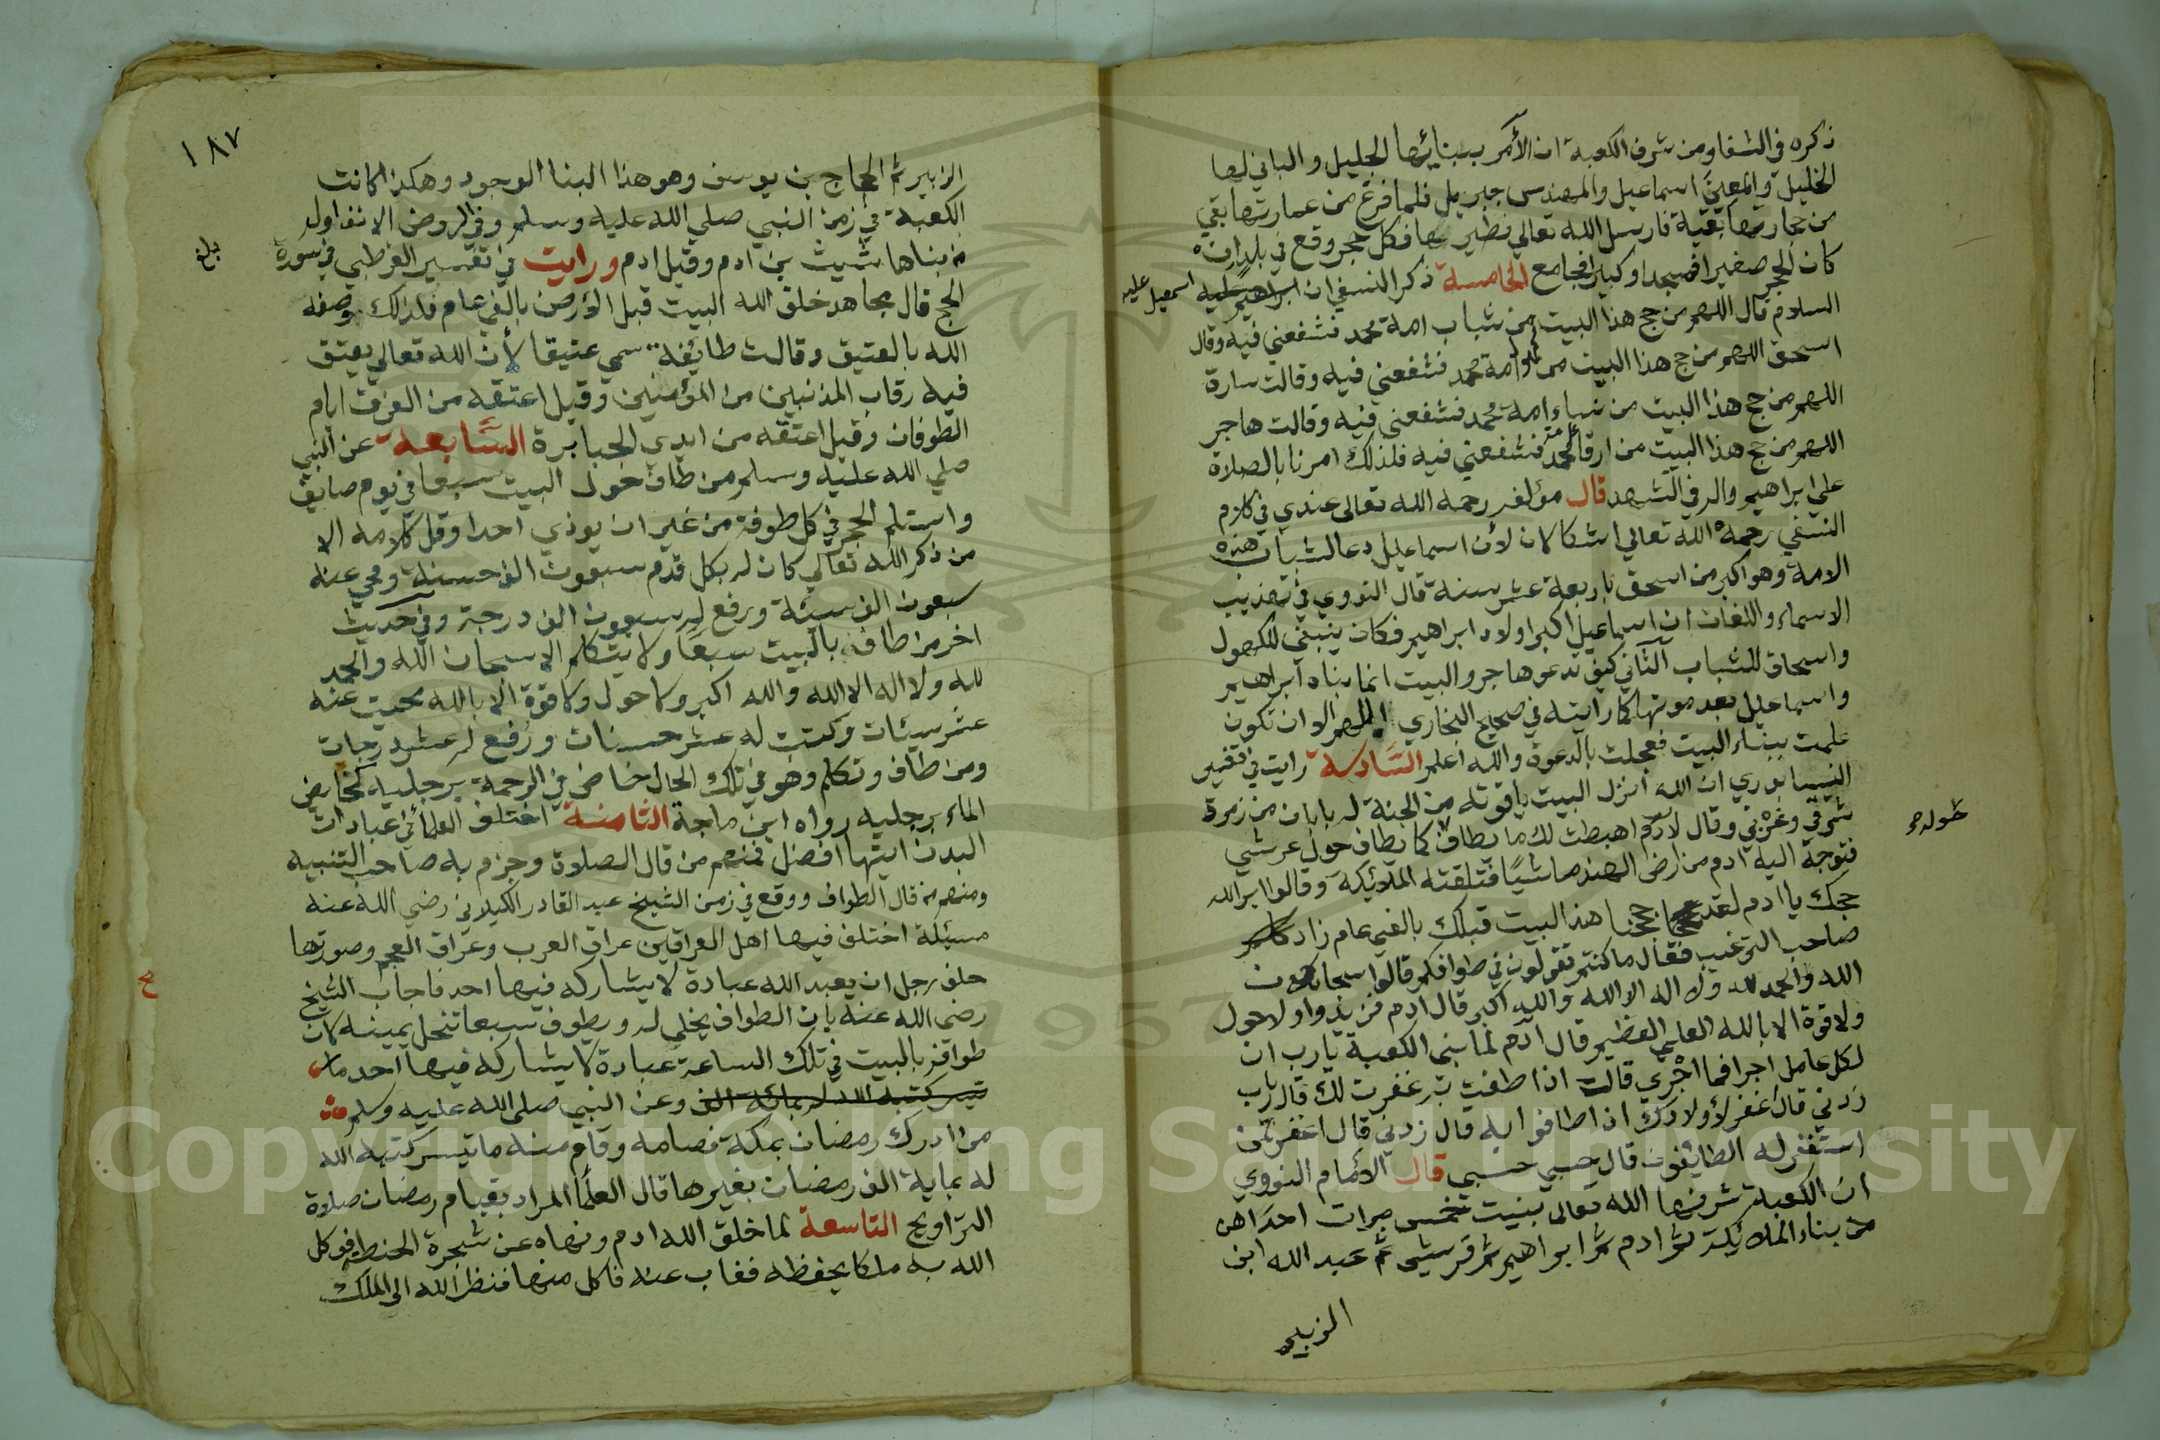 ذكره في الشفا ومن شرف الكعبة ان الأمر ببنائها الجليل والباني لها
الخليل والمعين اسماعيل والمهندس جبريل فلما فرغ من عمارتها بقي
من حجارتها بقية فارسل الله تعالي فطير بها فكل حجر وقع في بلد ان
كان الحجر صغيرا فمسجدا وكبيرا فجامع الخامسة ذكر النسفي ان ابراهيم عليه
اسمعيل عليه
السلام قال اللهم من حج هذا البيت من شباب امة محمد فشفعني فيه وقال
اسحق اللهم من حج هذا البيت من كهول امة محمد فشفعني فيه وقالت سارة
اللهم من حج هذا البيت من نساء امة محمد فشفعني فيه وقالت هاجر
اللهم من حج هذا البيت من ارقا امة محمد فشفعني فيه فلذلك امرنا بالصلاة
علي ابراهيم واله في التشهد قال مؤلفه رحمه الله تعالى عندي في كلام
النسفي رحمه الله تعالي اشكالان لأن اسماعيل دعا لشباب هذه
الامة وهو اكبر من اسحق باربعة عشر سنة قال النووي في تهذيب
الاسماء واللغات ان اسماعيل اكبر اولاد ابراهيم فكان ينبغي للكهول
واسحاق للشباب الثاني كيف تدعو هاجر والبيت انما بناه ابراهيم
واسماعيل بعد موتها كما رايته في صحيح البخاري اللهم الا ان تكون
علمت ببناء البيت فعجلت بالدعوة والله اعلم السادسة رايت في تفسير
النيسابوري ان الله انزل البيت ياقوتة من الجنة له بابان من زمرة
شرقي وغربي وقال لادم اهبطت لك ما يطاف كما يطاف حول عرشي
حوله
فتوجه اليه ادم من ارض الهند ماشيا فتلقته الملائكة وقالوا ابر الله
حجك يا ادم لقد حججنا هذا البيت قبلك بالفي عام زاد
صاحب الترغيب فقال ما كنتم تقولون في طوافكم قالوا سبحان
الله والحمد لله ولا اله الا الله والله اكبر قال ادم فزيدوا ولا حول
ولا قوة الا بالله العلي العظيم قال ادم لما بنى الكعبة يا رب ان
لكل عامل اجرا فما اجري قال اذا طفت به غفرت لك قال رب
زدني قال اغفر لأولادك اذا طافوا به قال زدني قال اغفر لمن
استغفر له الطايفون قال حسبي حسبي قال الامام النووي
ان الكعبة شرفها الله تعالى بنيت خمس مرات احداهن
من بناء الملائكة ثم ادم ثم ابراهيم ثم قريش ثم عبد الله ابن
الزبير
١٨٧
الزبير ثم الحجاج بن يوسف وهو هذا البنا الموجود وهكذا كانت
الكعبة في زمن النبي صلي الله عليه وسلم وفي الروض الانف اول
من بناها شيث بن ادم وقيل ادم ورايت في تفسير القرطبي في سورة
بلغ
الحج قال مجاهد خلق الله البيت قبل الارض بالفي عام فلذلك وصفه
الله بالعتيق وقالت طايفة سمي عتيقا لأن الله تعالي يعتق
فيه رقاب المذنبين من المؤمنين وقيل اعتقه من الغرق ايام
الطوفان وقيل اعتقه من ايدي الجبابرة السابعة عن النبي
صلي الله عليه وسلم من طاف حول البيت سبعا في يوم صايف
واستلم الحجر في كل طوفة من غير ان يوذي احدا وقل كلامه الا
من ذكر الله تعالي كان له بكل قدم سبعون الف حسنة ومحي عنه
سبعون الف سيئة ورفع له سبعون الف درجة وفي حديث
اخر من طاف بالبيت سبعا ولا يتكلم الا سبحان الله والحمد
لله ولا اله الا الله والله اكبر ولا حول ولا قوة الا بالله محيت عنه
عشر سيئات وكتبت له عشر حسنات ورفع له عشر درجات
ومن طاف وتكلم وهو في تلك الحال خاض في الرحمة برجليه كخايض
الماء برجليه رواه ابن ماجة الثامنة اختلف العلما في عبادات
البدن ايتها افضل فمنهم من قال الصلاة وجزم به صاحب التنبيه
ومنهم من قال الطواف ووقع في زمن الشيخ عبد القادر الكيلاني رضي الله عنه
مسئلة اختلف فيها اهل العراقين عراق العرب وعراق العجم وصورتها
حلف رجل ان يعبد الله عبادة لا يشاركه فيها احد فاجاب الشيخ
رضي الله عنه بان الطواف يخلي له ويطوف سبعا تنحل يمينه لان
طوافه بالبيت في تلك الساعة عبادة لا يشاركه فيها احد ما
تيسر كتبه الله له بمائة الف وعن النبي صلى الله عليه وسلم
من ادرك رمضان بمكة فصامه وقام منه ما تيسر كتبه الله
له بماية الف رمضان بغيرها قال العلما المراد بقيام رمضان صلاة
التراويح التاسعة لما خلق الله ادم ونهاه عن شجرة الحنطة فوكل
الله به ملكا يحفظه فغاب عنه فاكل منها فنظر الله الى الملك
Copyright © King Saud University
1957